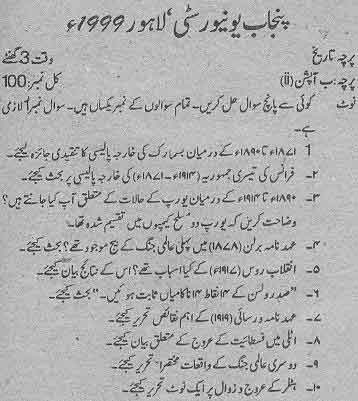 پنجاب یونیورسٹی، لاہور 1999ء
پرچہ تاریخ وقت 3 گھنٹے
پرچہ: ب آپشن (ii) کل نمبر: 100
نوٹ کوئی سے پانچ سوال حل کریں۔ تمام سوالوں کے نمبر یکساں ہیں۔ سوال نمبر 1 لازمی
ہے۔
1 ۱۸۷۱ء تا ۱۸۹۰ء کے درمیان بسمارک کی خارجہ پالیسی کا تنقیدی جائزہ لیجئے۔
۲۔ فرانس کی تیسری جمہوریہ (۱۹۱۴ء-۱۸۷۱ء) کی خارجہ پالیسی پر بحث کیجئے۔
۳۔ ۱۸۹۰ء تا ۱۹۱۴ء کے درمیان یورپ کے حالات کے متعلق آپ کیا جانتے ہیں؟
وضاحت کریں کہ یورپ دو مسلح کیمپوں میں تقسیم شدہ تھا۔
۴۔ عہد نامہ برلن (۱۸۷۸ء) میں پہلی عالمی جنگ کے بیج موجود تھے؟ بحث کیجئے۔
۵۔ انقلاب روس (۱۹۱۷ء) کے کیا اسباب تھے؟ اس کے نتائج بیان کیجئے۔
۶۔ "صدر ولسن کے ۱۴ نقاط ۱۴ ناکامیاں ثابت ہوئیں۔" بحث کیجئے۔
۷۔ عہد نامہ ورسائی (۱۹۱۹ء) کے اہم نقائص تحریر کیجئے۔
۸۔ اٹلی میں فسطائیت کے عروج کے متعلق بیان کیجئے۔
۹۔ دوسری عالمی جنگ کے واقعات مختصراً تحریر کیجئے۔
۱۰۔ ہٹلر کے عروج و زوال پر ایک نوٹ تحریر کیجئے۔